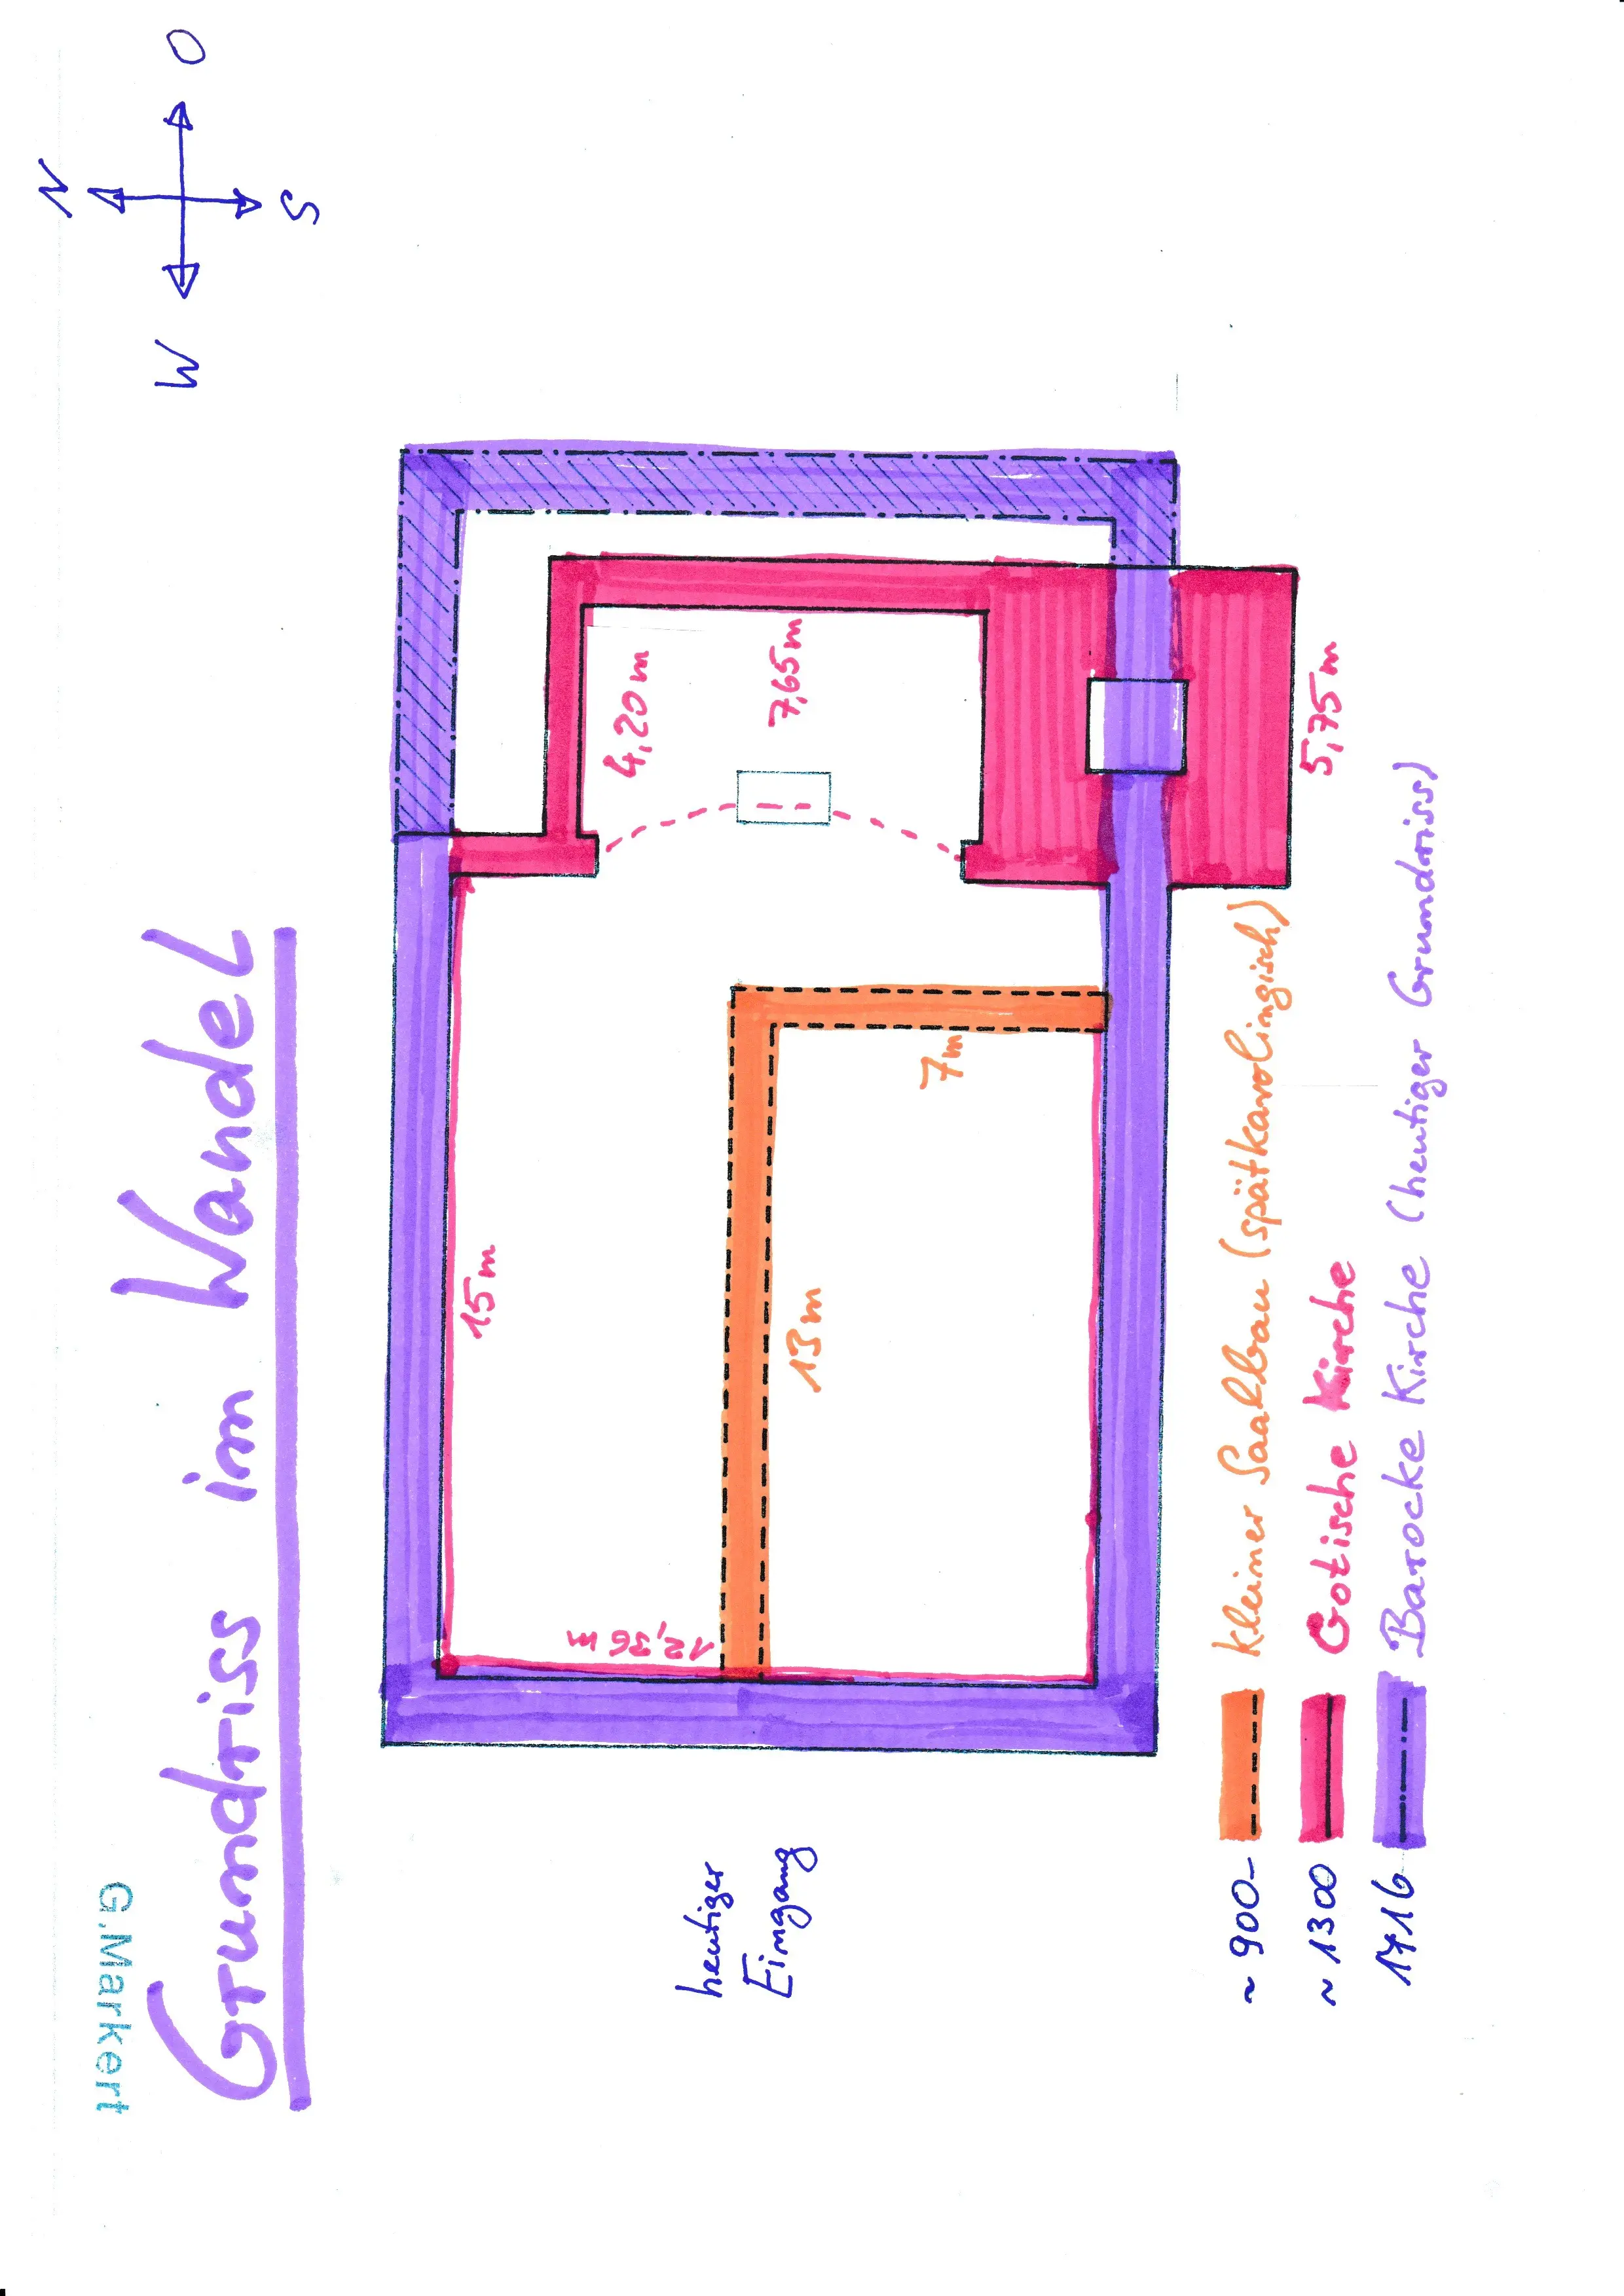 G.Markert
Grundriss im Wandel
N
W
O
S
15 m
12,36 m
13 m
7 m
4,20 m
7,65 m
5,75 m
heutiger
Eingang
~ 900- kleiner Saalbau (spätkarolingisch)
~ 1300 Gotische Kirche
1716 Barocke Kirche (heutiger Grundriss)